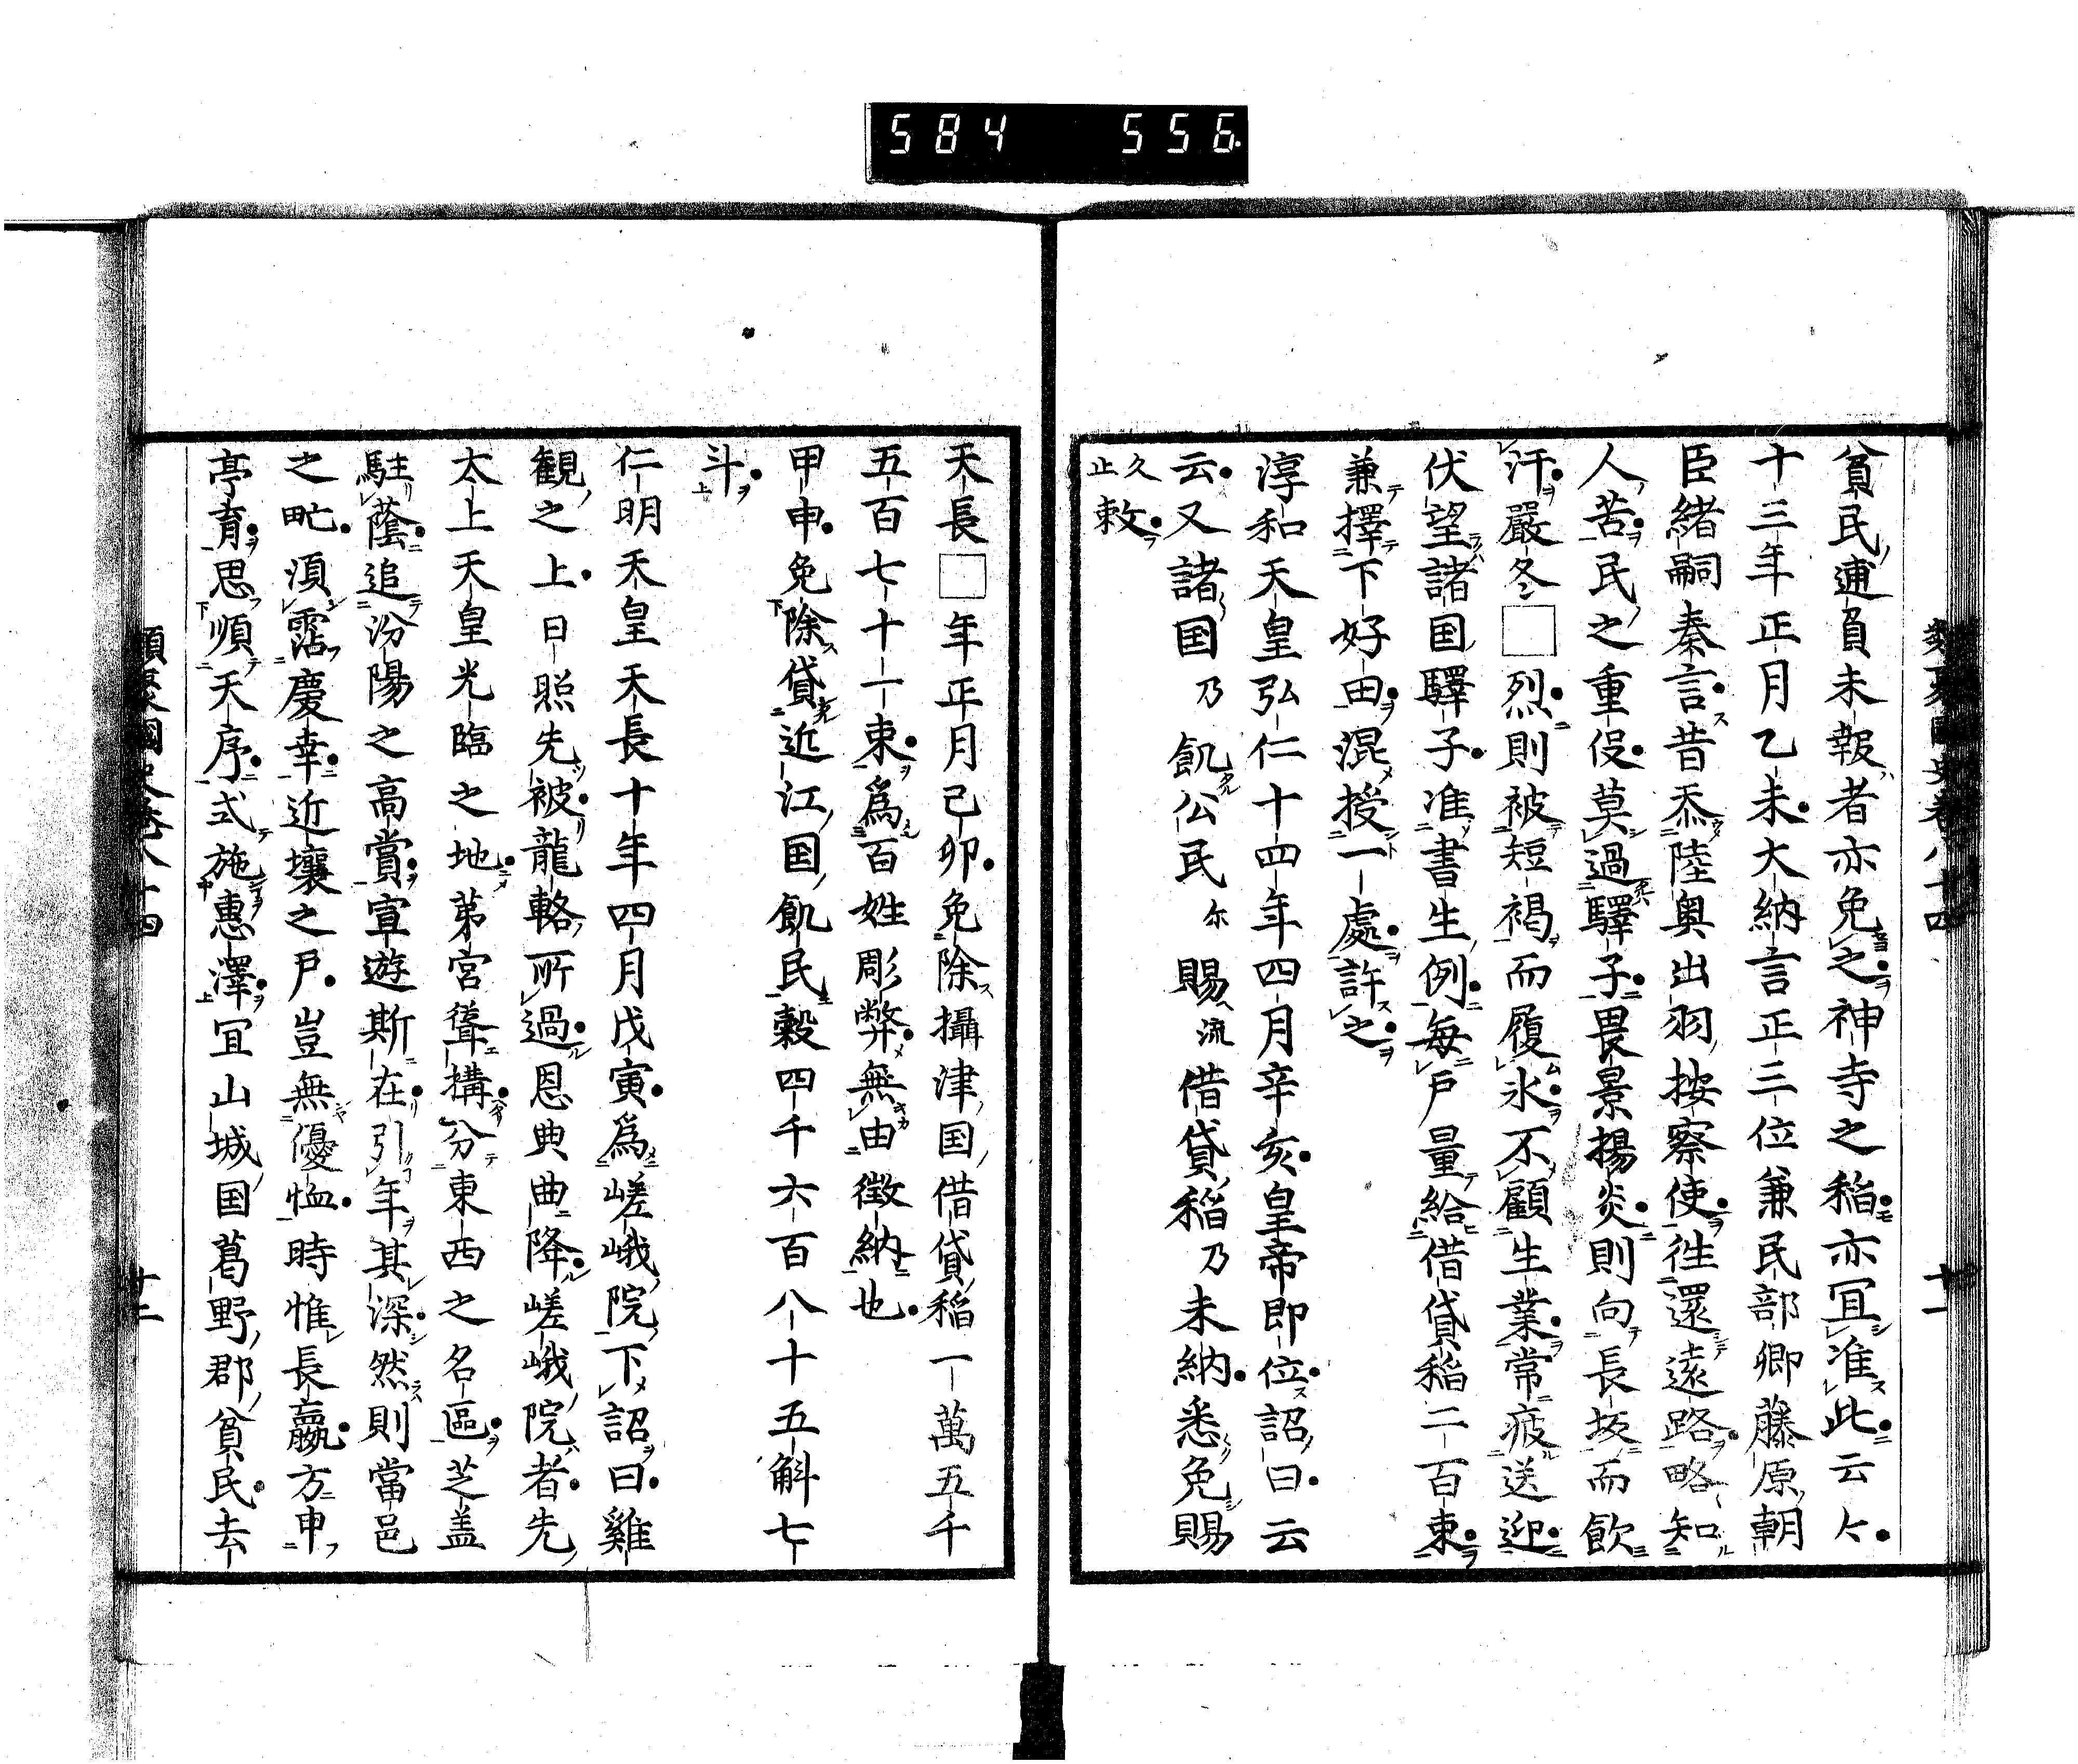 584 556
貧民逋負未報者亦免之神寺之稲亦冝准此云々
十三年正月乙未大納言正三位兼民部卿藤原朝
臣緒嗣奏言昔忝陸奥出羽按察使徃還遠路略知
人苦民之重伇莫過驛子畏景揚炎則向長坂而飲
汗嚴冬□烈則被短褐而履氷不顧生業常疲送迎
伏望諸国驛子准書生例毎戸量給借貸稲二百束
兼擇下好田混授一處許之
淳和天皇弘仁十四年四月辛亥皇帝即位詔曰云
云又諸国乃飢公民尓賜流借貸稲乃未納悉免賜
久止敕
天長□年正月己卯免除攝津国借貸稲一萬五千
五百七十一束爲百姓彫弊無由徴納也
甲申免除貸近江国飢民穀四千六百八十五斛七
斗
仁明天皇天長十年四月戊寅爲嵯峨院下詔曰雞
観之上日照先被龍輅所過恩典曲降嵯峨院者先
太上天皇光臨之地苐宮聳構分東西之名區芝盖
駐蔭追汾陽之高賞宣遊斯在引年其深然則當邑
之甿湏霑慶幸近壤之戸豈無優恤時惟長嬴方申
亭育思順天序式施惠澤冝山城国葛野郡貧民去
類聚國史卷八十四 十一
類聚國史卷八十四 十二